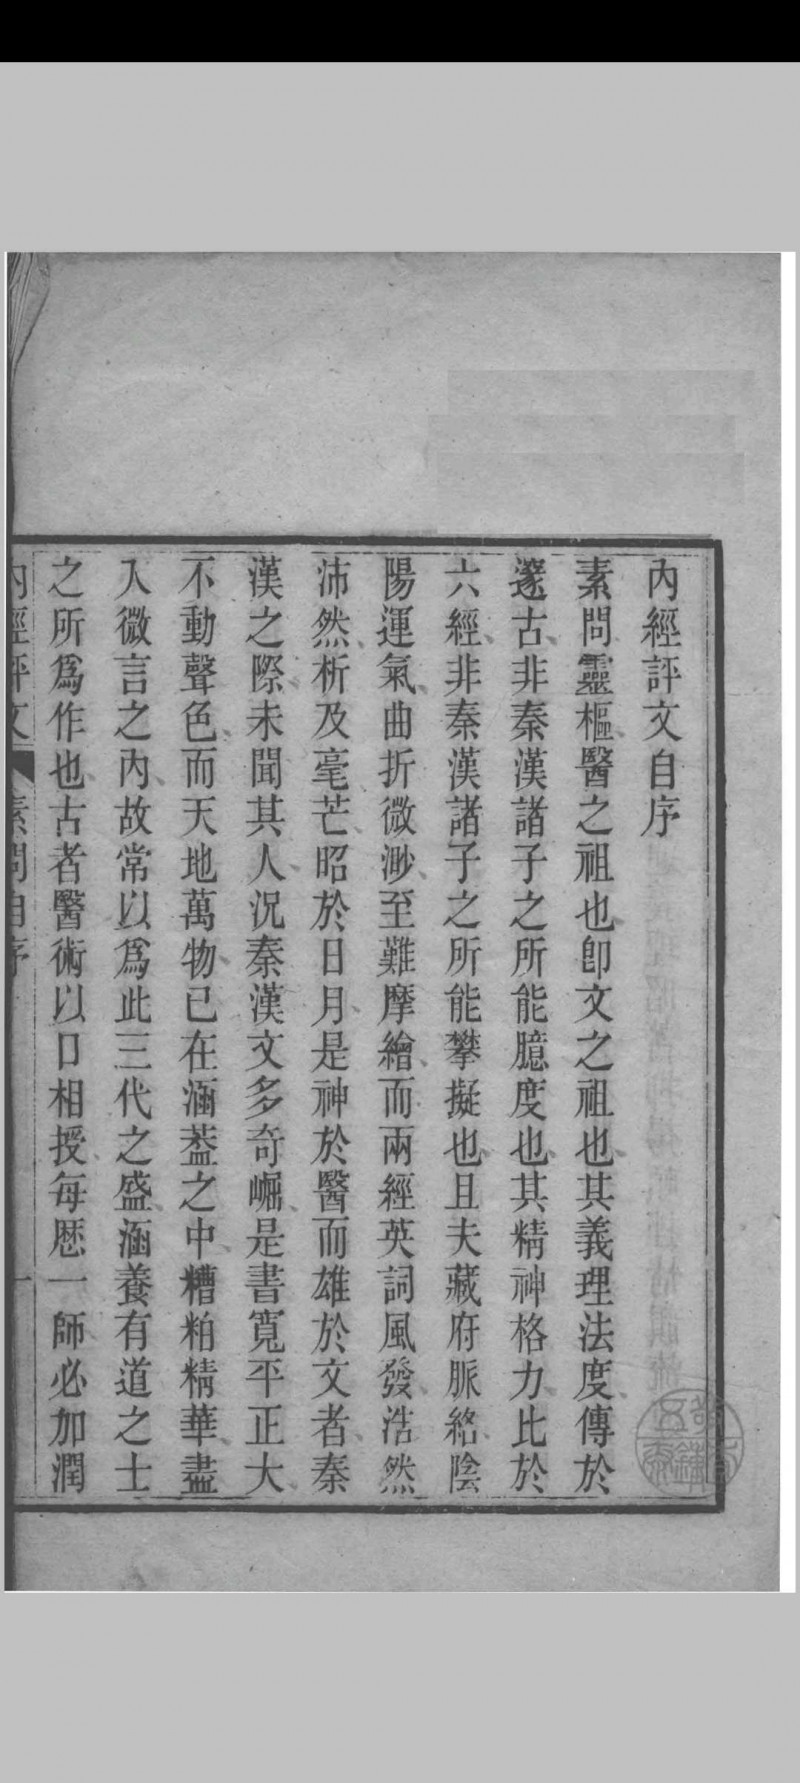 內經評文自序
素問靈樞醫之祖也卽文之祖也其義理法度傳於
邃古非秦漢諸子之所能臆度也其精神格力比於
六經非秦漢諸子之所能攀擬也且夫藏府脈絡陰
陽運氣曲折微渺至難摩繪而兩經英詞風發浩然
沛然析及毫芒昭於日月是神於醫而雄於文者秦
漢之際未聞其人況秦漢文多奇崛是書寬平正大
不動聲色而天地萬物已在涵葢之中糟粕精華盡
入微言之內故常以爲此三代之盛涵養有道之士
之所爲作也古者醫術以口相授每厯一師必加潤
內經評文 素問自序 一